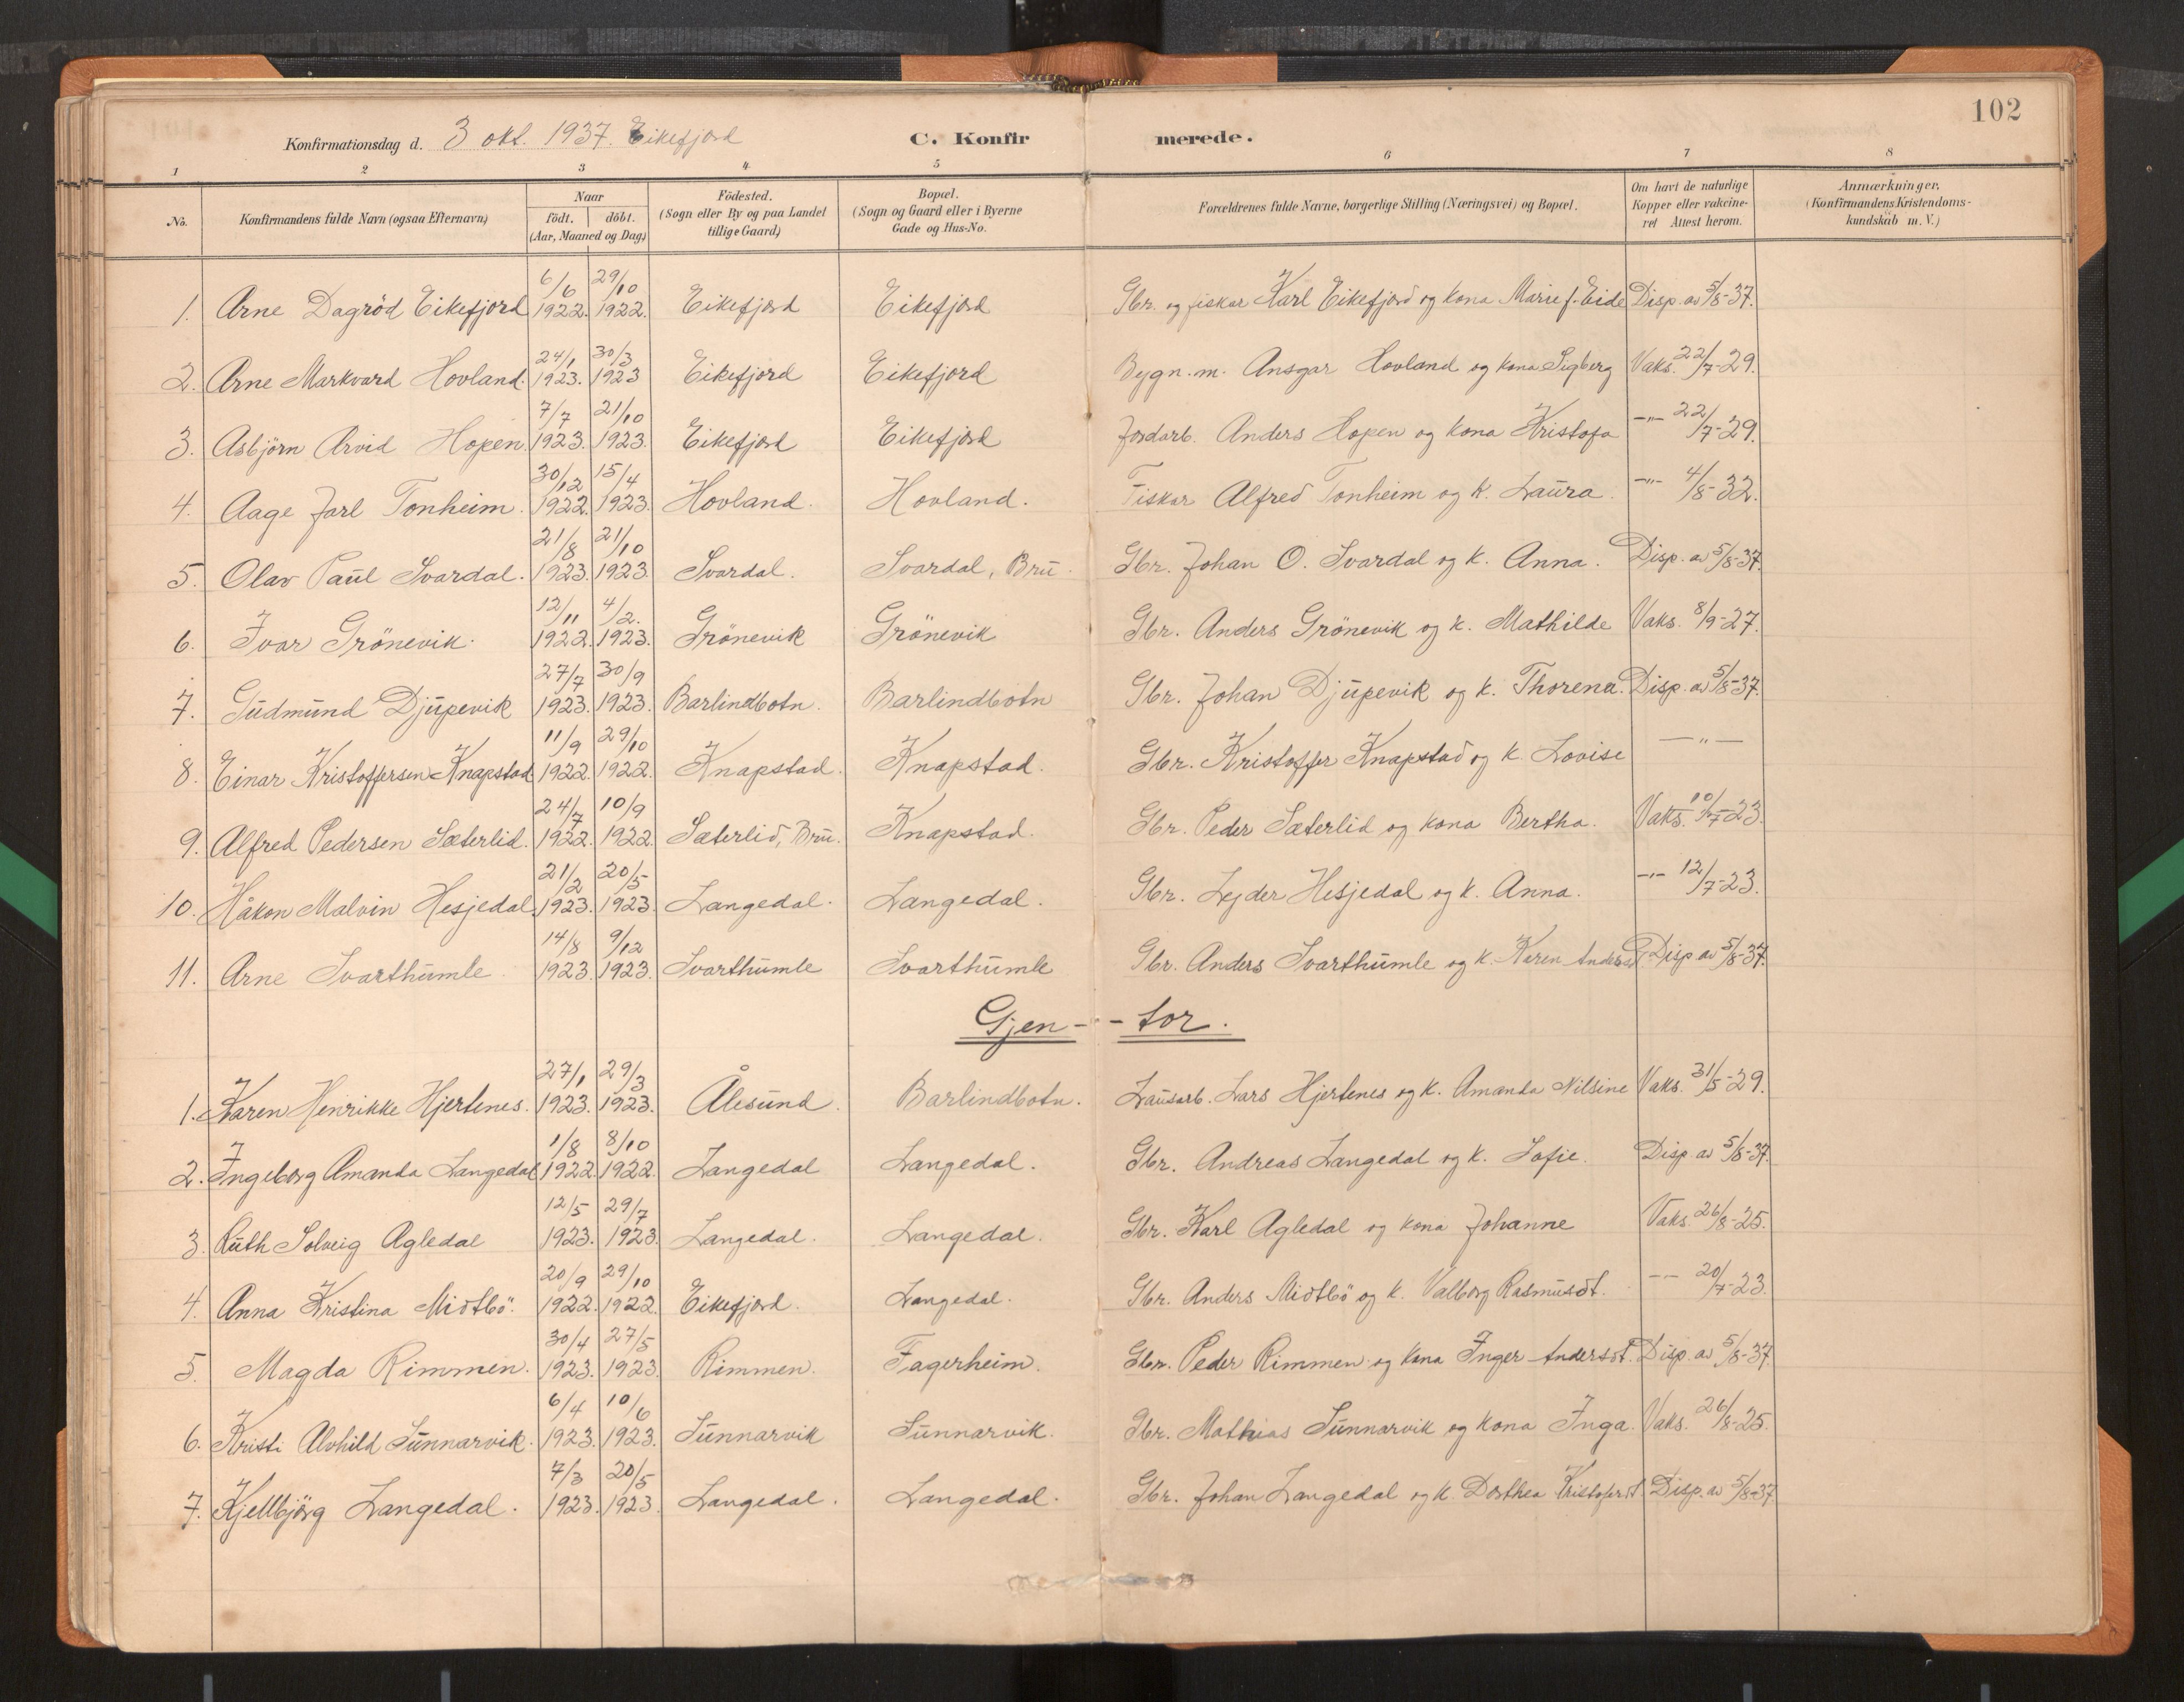 102
Konfirmationsdag d. 3 okt. 1937. Eikefjord C. Konfir merede.
1 2 3 4 5 6 7 8
No. Konfirmandens fulde Navn (ogsaa Efternavn) Naar födt. döbt. (Aar, Maaned og Dag.) Födested. (Sogn eller By og paa Landet tillige Gaard.) Bopæl. (Sogn og Gaard eller i Byerne Gade og Hus-No. Forældrenes fulde Navne, borgerlige Stilling (Næringsvei) og Bopæl. Om havt de naturlige Kopper eller vakcineret Attest herom. Anmærkninger. (Konfirmandens Kristendomskundskab m. V.)
1. Arne Dagröd Eikefjord 6/6 1922. 29/10 1922. Eikefjord Eikefjord Gbr. og fisker Karl Eikefjord og kona Marie f. Eide Disp. av 5/8-37.
2. Arne Markvard Hovland. 24/1 1923. 30/3 1923 Eikefjord Eikefjord Bygn.m. Ansgar Hovland og kona Sigberg Vaks. 22/7-29.
3. Asbjörn Arvid Hopen. 7/7 1923. 21/10 1923. Eikefjord Eikefjord Jordarb. Anders Hopen og kona Kristofa -"- 22/7-29.
4. Aage Jarl Tonheim. 30/12 1922. 15/4 1923. Hovland. Hovland. Fisker Alfred Tonheim og k. Laura. -"- 4/8-32.
5. Olav Paul Svardal. 21/8 1923. 21/10 1923. Svardal. Svardal, Bru. Gbr. Johan O. Svardal og k. Anna. Disp. av 5/8-37.
6. Ivar Grönevik. 12/11 1922. 4/2. 1923. Grönevik Grönevik Gbr. Anders Grönevik og k. Mathilde Vaks. 8/9-27.
7. Gudmund Djupevik 27/7 1923. 30/9 1923. Barlindbotn. Barlindbotn Gbr. Johan Djupevik og k. Thorena. Disp. av 5/8-37.
8. Einar Kristoffersen Knapstad 11/9 1922. 29/10 1922. Knapstad. Knapstad. Gbr. Kristoffer Knapstad og k. Lovise -"-
9. Alfred Pedersen Sæterlid. 24/7 1922. 10/9 1922. Sæterlid, Bru. Knapstad. Gbr. Peder Sæterlid og kona Bertha. Vaks. 10/7-23.
10. Håkon Malvin Hesjedal. 21/2 1923. 20/5 1923. Langedal. Langedal. Gbr. Hesjedal og k. Anna. -"- 12/7-23.
11. Arne Svarthumle. 14/8 1923. 9/12 1923. Svarthumle Svarthumle Gbr. Anders Svarthumle og k. Karen Disp av 5/8-37.
Gjen- - tor.
1. Karen Henrikke Hjertenes. 27/1 1923. 29/3 1923. Ålesund. Barlindbotn. Lausarb. Lars Hjertenes og k. Amanda Nilsine Vaks. 31/5-29.
2. Ingeborg Amanda Langedal 1/8 1922. 8/10 1922. Langedal Langedal. Gbr. Andreas Langedal og k. Sofie. Disp av 5/8-37.
3. Ruth Solveig Agledal 12/5 1923. 29/7 1923. Langedal. Langedal. Gbr. Karl Agledal og kona Johanne Vaks. 26/8-25.
4. Anna Kristina Midtbö. 20/9 1922. 29/10 1922. Eikefjord. Langedal. Gbr. Anders Midtbö og k. Valborg Rasmusdt. -- 20/7-23.
5. Magda Rimmen. 30/4 1923. 27/5 1923. Rimmen. Fagerheim. Gbr. Peder Rimmen og kona Inger Andersdt. Disp. av 5/8-37
6. Kristi Alvhild Sunnarvik. 6/4 1923. 10/6 1923. Sunnarvik Sunnarvik. Gbr. Mathias Sunnarvik og kona Inga. Vaks. 26/8-25.
7. Kjellbjörg Langedal. 7/3 1923. 20/5 1923. Langedal. Langedal. Gbr. Johan Langedal og k. Dorthea Kristofersdt. Disp. av 5/8-37